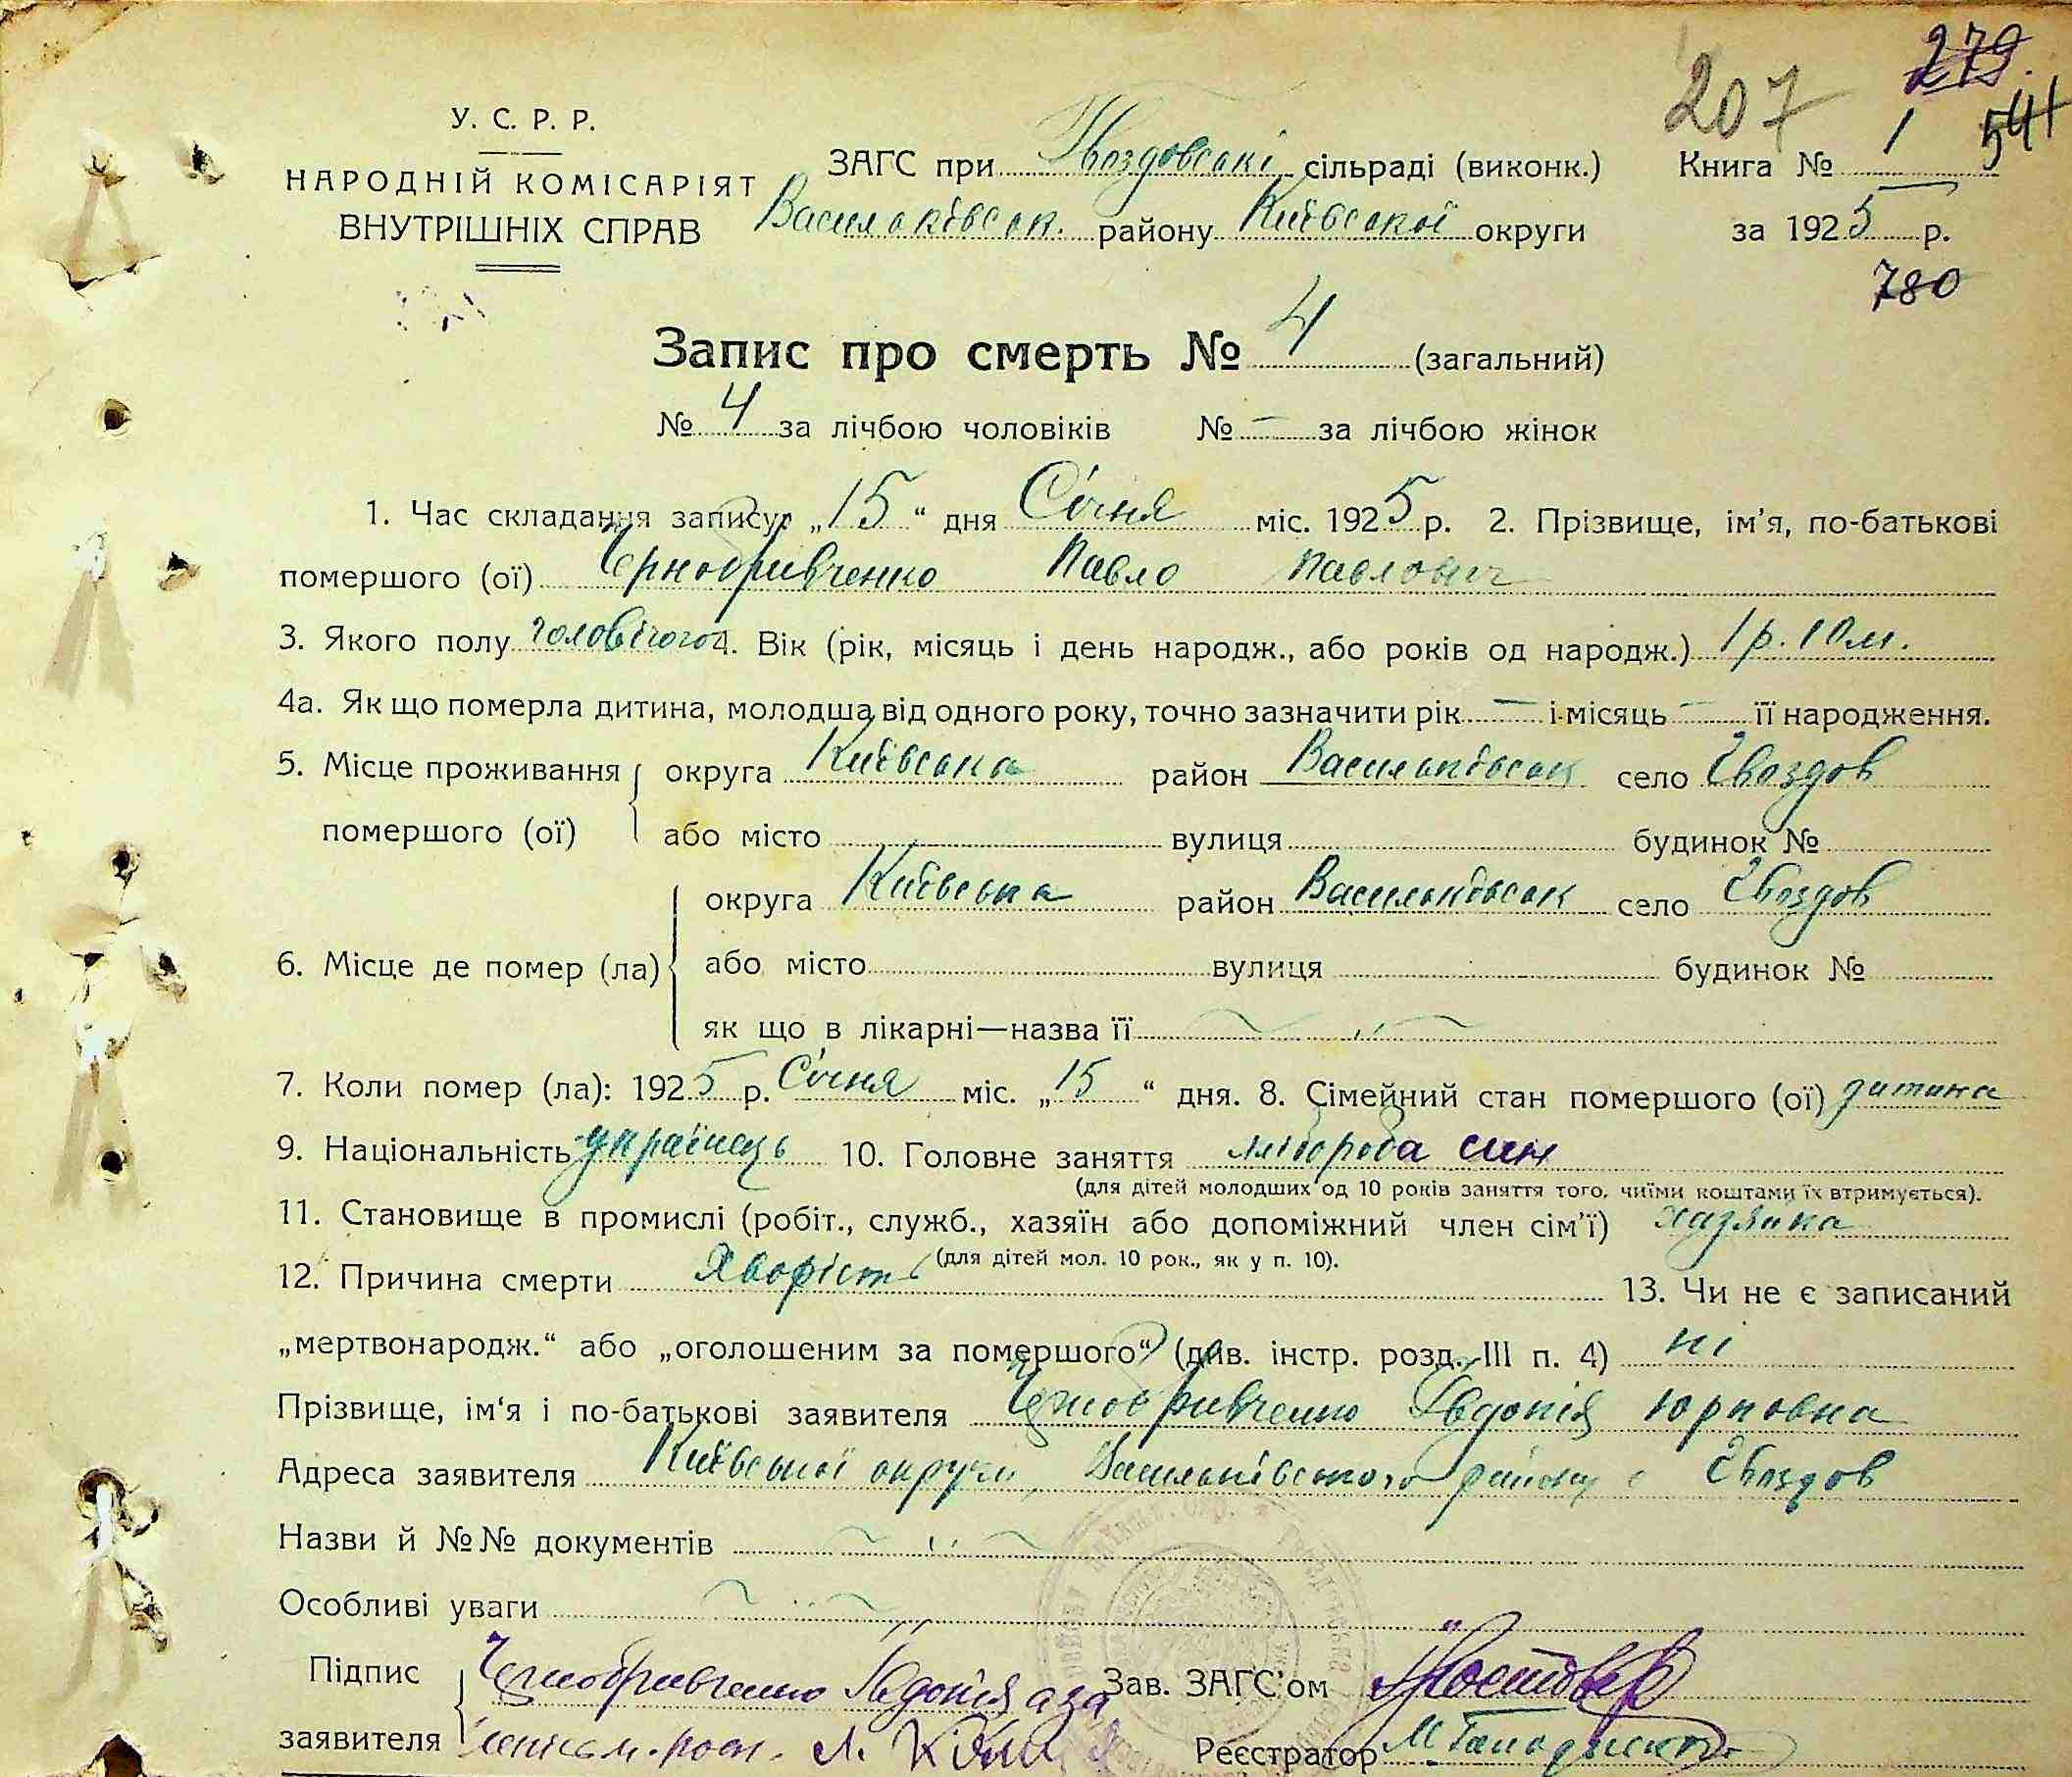 279
207
541
У. С. Р. Р.
НАРОДНІЙ КОМІСАРІЯТ
ВНУТРІШНІХ СПРАВ
ЗАГС при Гвоздовські сільраді (виконк.) Книга № 1
Васильківськ. району Київської округи за 1925 р.
780
Запис про смерть № 4 (загальний)
№ 4 за лічбою чоловіків № – за лічбою жінок
1. Час складання запису: „15“ дня Січня міс. 1925 р. 2. Прізвище, ім’я, по-батькові
помершого (ої) Чернобривченко Павло Павлович
3. Якого полу чоловічого 4. Вік (рік, місяць і день народж., або років од народж.) 1 р. 10 м.
4а. Як що померла дитина, молодша від одного року, точно зазначити рік – і місяць – її народження.
5. Місце проживання помершого (ої) округа Київська район Васильківськ село Гвоздов
або місто вулиця будинок №
6. Місце де помер (ла) округа Київська район Васильківськ село Гвоздов
або місто вулиця будинок №
як що в лікарні—назва її
7. Коли помер (ла): 1925 р. Січня міс. „15“ дня. 8. Сімейний стан помершого (ої) дитина
9. Національність українець 10. Головне заняття хлібороба син
(для дітей молодших од 10 років заняття того, чиїми коштами їх втримується).
11. Становище в промислі (робіт., служб., хазяїн або допоміжний член сім’ї) хазяїна
(для дітей мол. 10 рок., як у п. 10).
12. Причина смерти Хворість 13. Чи не є записаний
„мертвонародж.“ або „оголошеним за помершого“ (див. інстр. розд. III п. 4) ні
Прізвище, ім‘я і по-батькові заявителя Чернобривченко Євдокія Юрковна
Адреса заявителя Київської округи, Васильківського району с Гвоздов
Назви й №№ документів
Особливі уваги
Підпис заявителя Чернобривченко Євдокія а за
Зав. ЗАГС’ом
Реєстратор